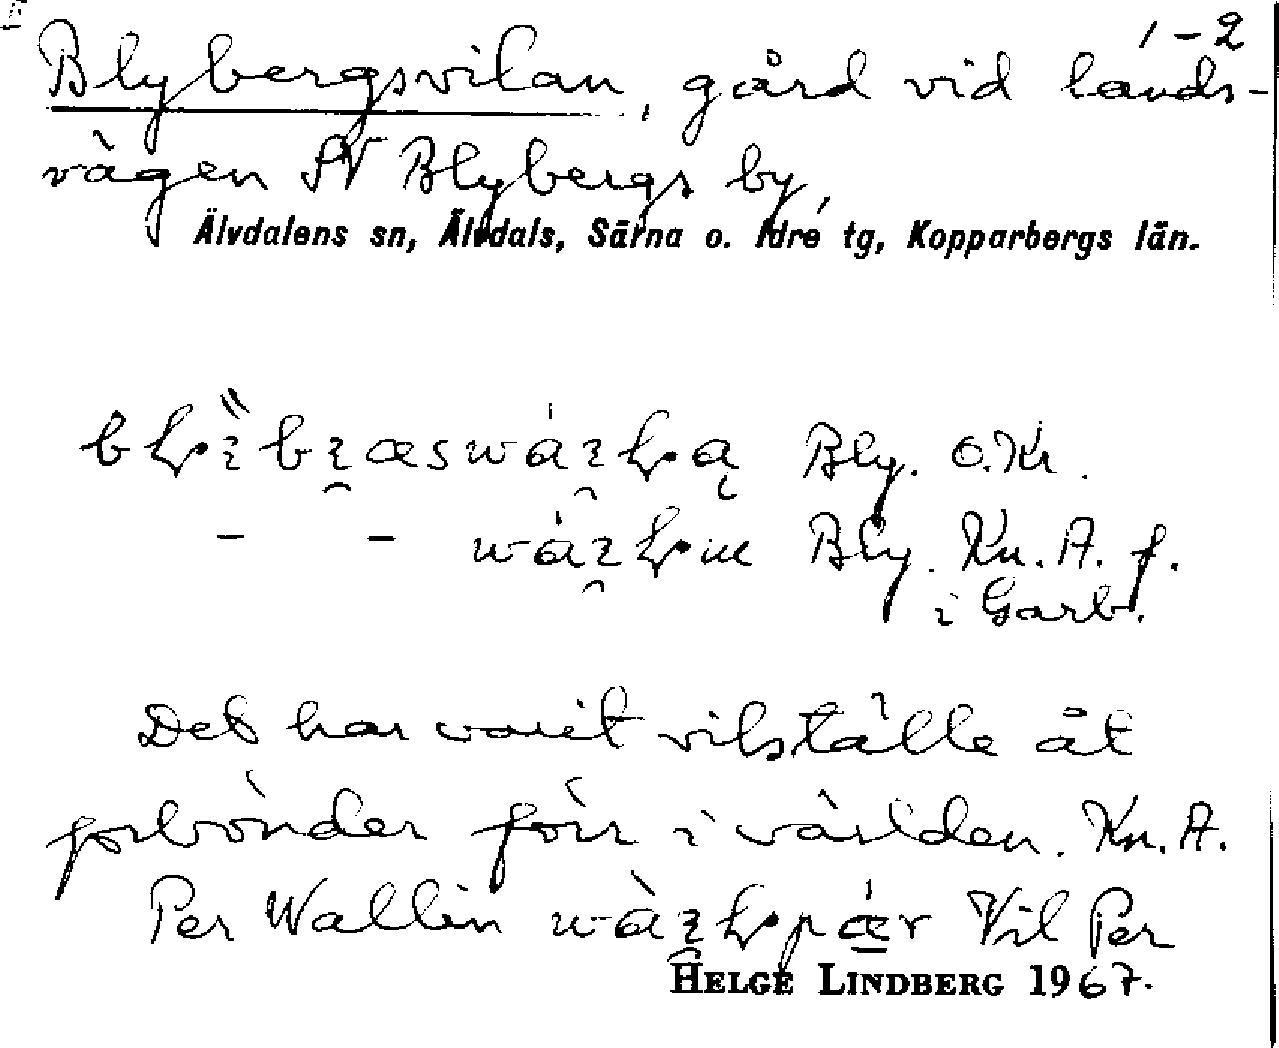 1-2
Blybergsvilan, gård vid lands-
vägen SV Blybergs by,
Älvdalens sn, Älvdals, Särna o. Idre tg, Kopparbergs län.
Bly. O.Kr.
- - Bly. Kn. A. f.
i Garb.
Det har varit vilställe åt
forbönder förr i världen. Kn. A.
Per Wallin Vil Per
HELGE LINDBERG 1967.